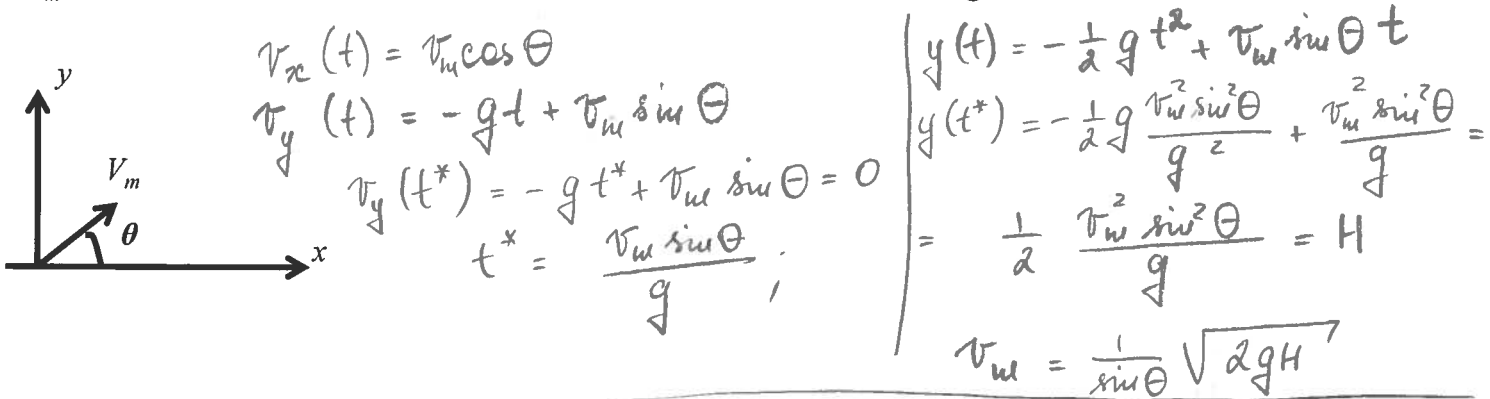 y
V_m
θ
x
v_x (t) = v_m cos θ
v_y (t) = - g t + v_m sin θ
v_y (t*) = - g t* + v_m sin θ = 0
t* = \frac{v_m sin θ}{g} ;
y(t) = - \frac{1}{2} g t² + v_m sin θ t
y(t*) = - \frac{1}{2} g \frac{v_m² sin² θ}{g²} + \frac{v_m² sin² θ}{g} =
= \frac{1}{2} \frac{v_m² sin² θ}{g} = H
v_m = \frac{1}{sin θ} \sqrt{2gH}